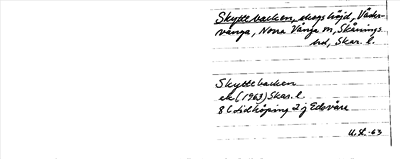 Skyttebacken, skogshöjd, Väder-
vånga, Norra Vånga sn, Skånings
hd, Skar. l.
Skyttebacken
ek (1963) Skar. l.
8 C Lidköping 2 j Edsvära